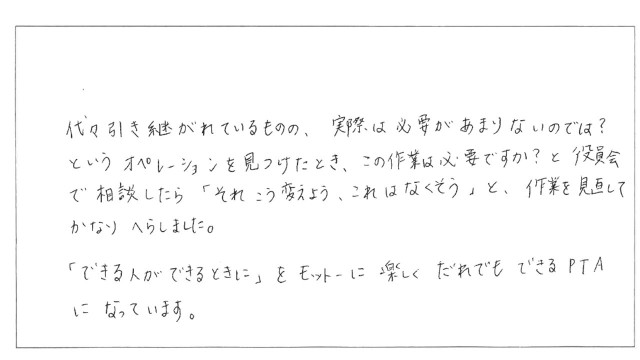 代々引き継がれているものの、実際は必要があまりないのでは?
というオペレーションを見つけたとき、この作業は必要ですか?と役員会
で相談したら「それこう変えよう、これはなくそう」と、作業を見直して
かなりへらしました。
「できる人ができるときに」をモットーに楽しくだれでもできるPTA
になっています。